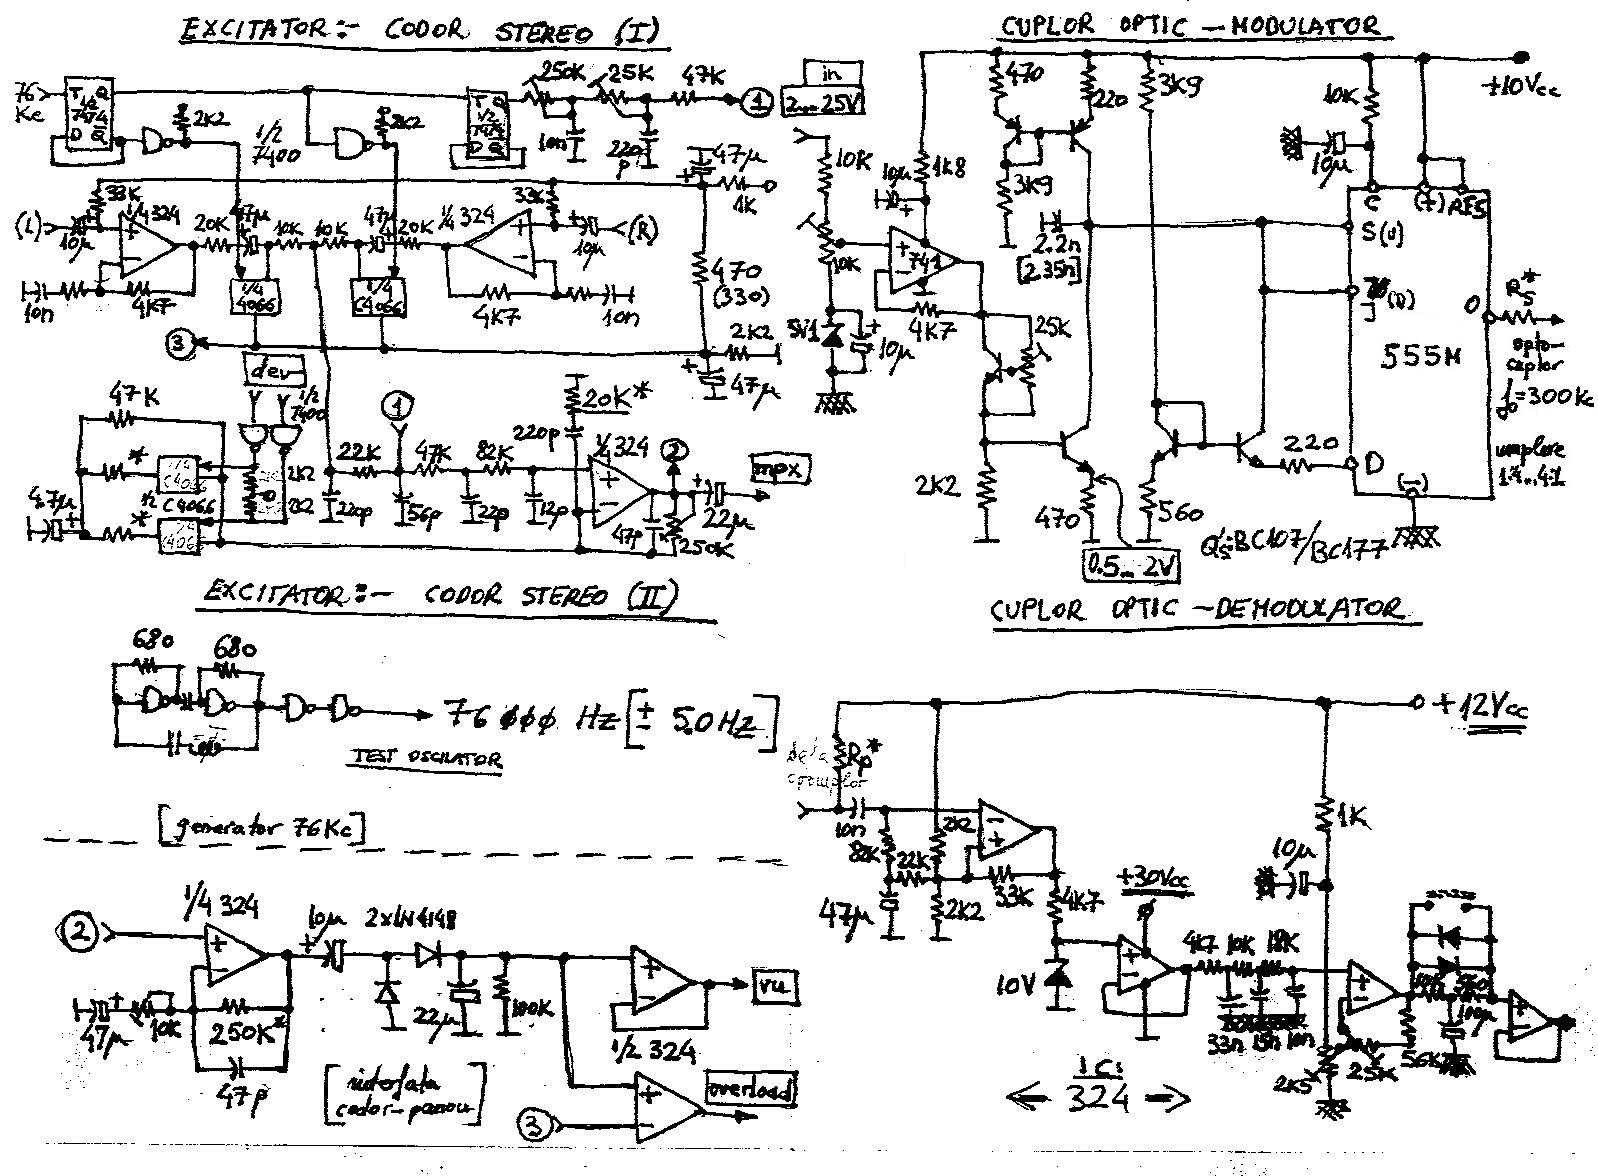 EXCITATOR:- CODOR STEREO (I)
76 Kc
T Q
1/2
7474
D Q
2K2
1/2
7400
2K2
T Q
1/2
7474
D Q
250K 25K 47K
1
10n
220p
47µ
1K
33K
(L)
10µ
1/4 324
20K
47µ
10K
10K
47µ
20K
1/4 324
33K
10µ
(R)
10n
4K7
1/4
4066
1/4
C4066
4K7
10n
470
(330)
3
2K2
47µ
dev
1/2
7400
47K
*
C4066
1/2 C4066
*
47µ
2K2
2K2
1
22K 47K 82K
220p 56p 22p 12p
20K*
220p
1/4 324
2
mpx
22µ
47p
250K
EXCITATOR:- CODOR STEREO (II)
680 680
76 000 Hz [± 50Hz]
TEST OSCILATOR
[generator 76Kc]
2
1/4 324
10µ
2x1N4148
47µ
10K
250K*
47p
22µ
100K
vu
1/2 324
overload
3
[interfata
codor-panou]
CUPLOR OPTIC - MODULATOR
in
2...25V
10K
10K
5V1
10µ
10µ
1K8
741
4K7
470
220
3K9
3K9
2.2n
[2.35n]
25K
2K2
470
0.5...2V
560
220
10K
10µ
+10Vcc
C (+) RES
S(J)
O
555M
D
(-)
Rs*
opto-
cuplor
fo=300Kc
umplere
1:1...4:1
Q's=BC107/BC177
CUPLOR OPTIC - DEMODULATOR
+12Vcc
de la
Rp*
10n
82K
22K
2K2
47µ
2K2
33K
4K7
10V
+30Vcc
4K7 10K 18K
33n 15n 10n
1K
10µ
2K5
25K
56K
10K
100µ
IC:
324